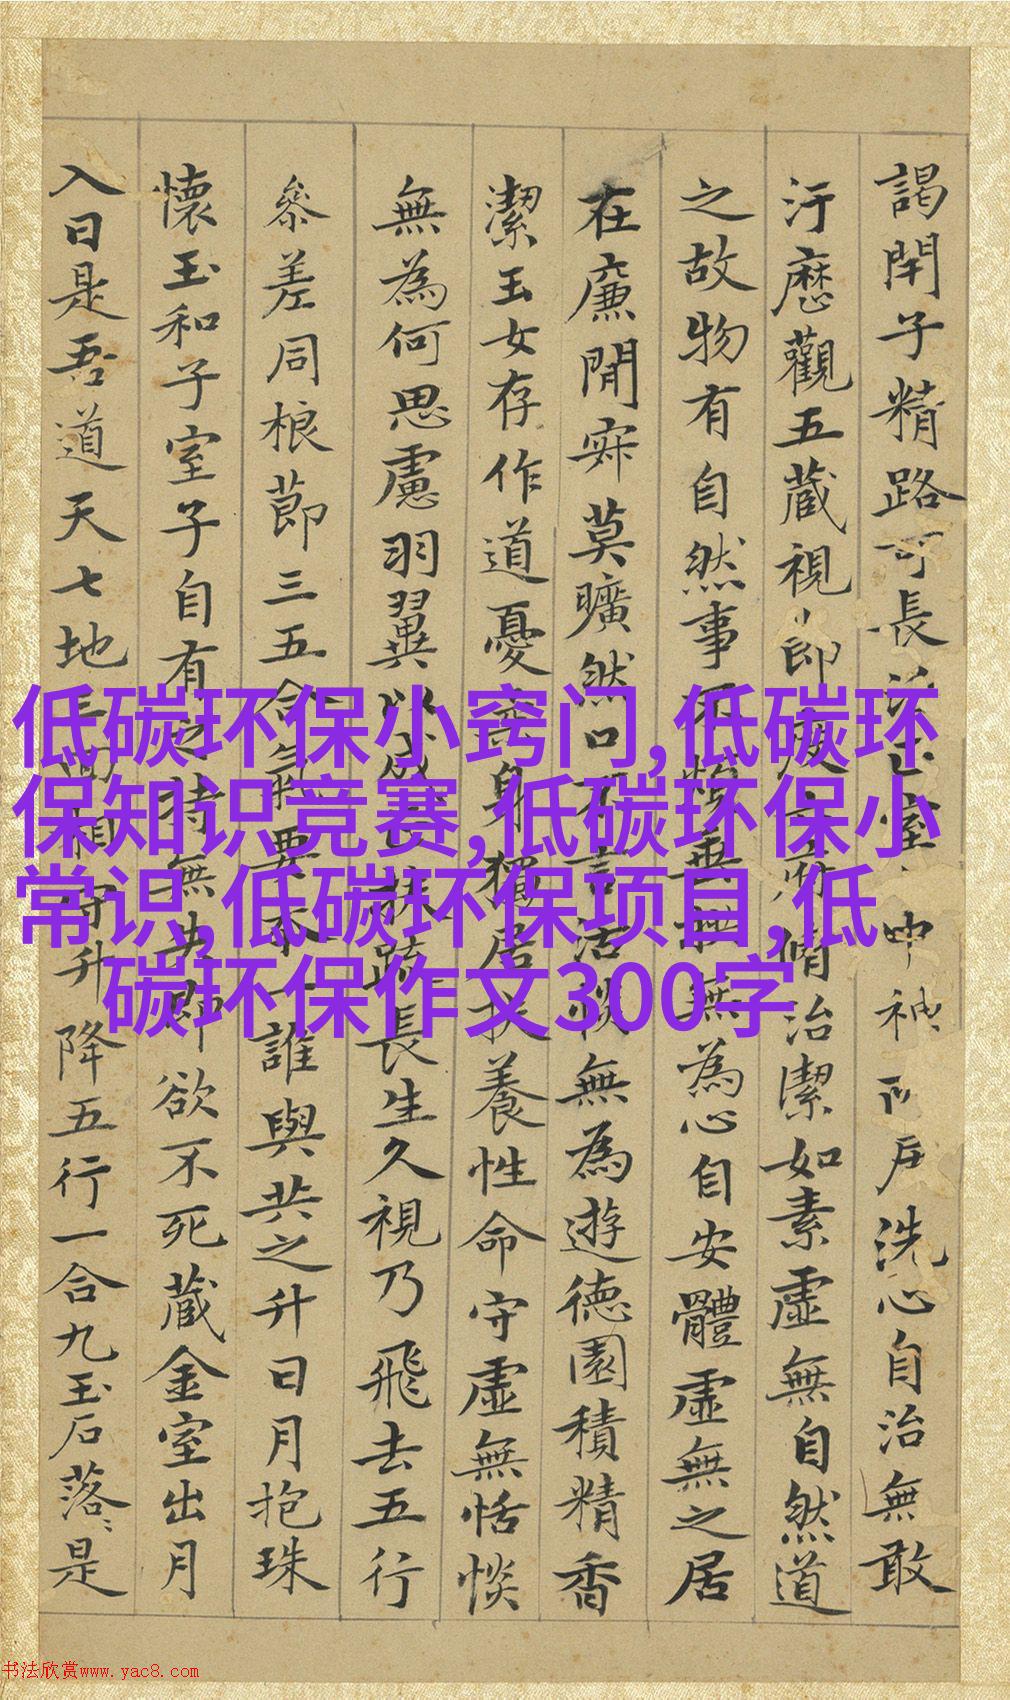 謁閇子精路可長
洗心自治無敢
汙歷觀五藏視
脩治潔如素虛無自然道
之故物有自然事不煩垂拱無為心自安體虛無之居
在廉閒寂莫曠然口不言
無為遊德園積精香
潔玉女存作道憂
身獨居扶養性命守虛無恬惔
無為何思慮羽翼以成
扶疏長生久視乃飛去五行
參差同根莭三五合氣要
一誰與共之升日月抱珠
懷玉和子室子自有之持無失即欲不死藏金室出月
入日是吾道天七地三
相守升降五行一合九玉石落〻是
低碳环保小窍门,低碳环
保知识竞赛,低碳环保小
常识,低碳环保项目,低
碳环保作文300字
书法欣赏www.yac8.com